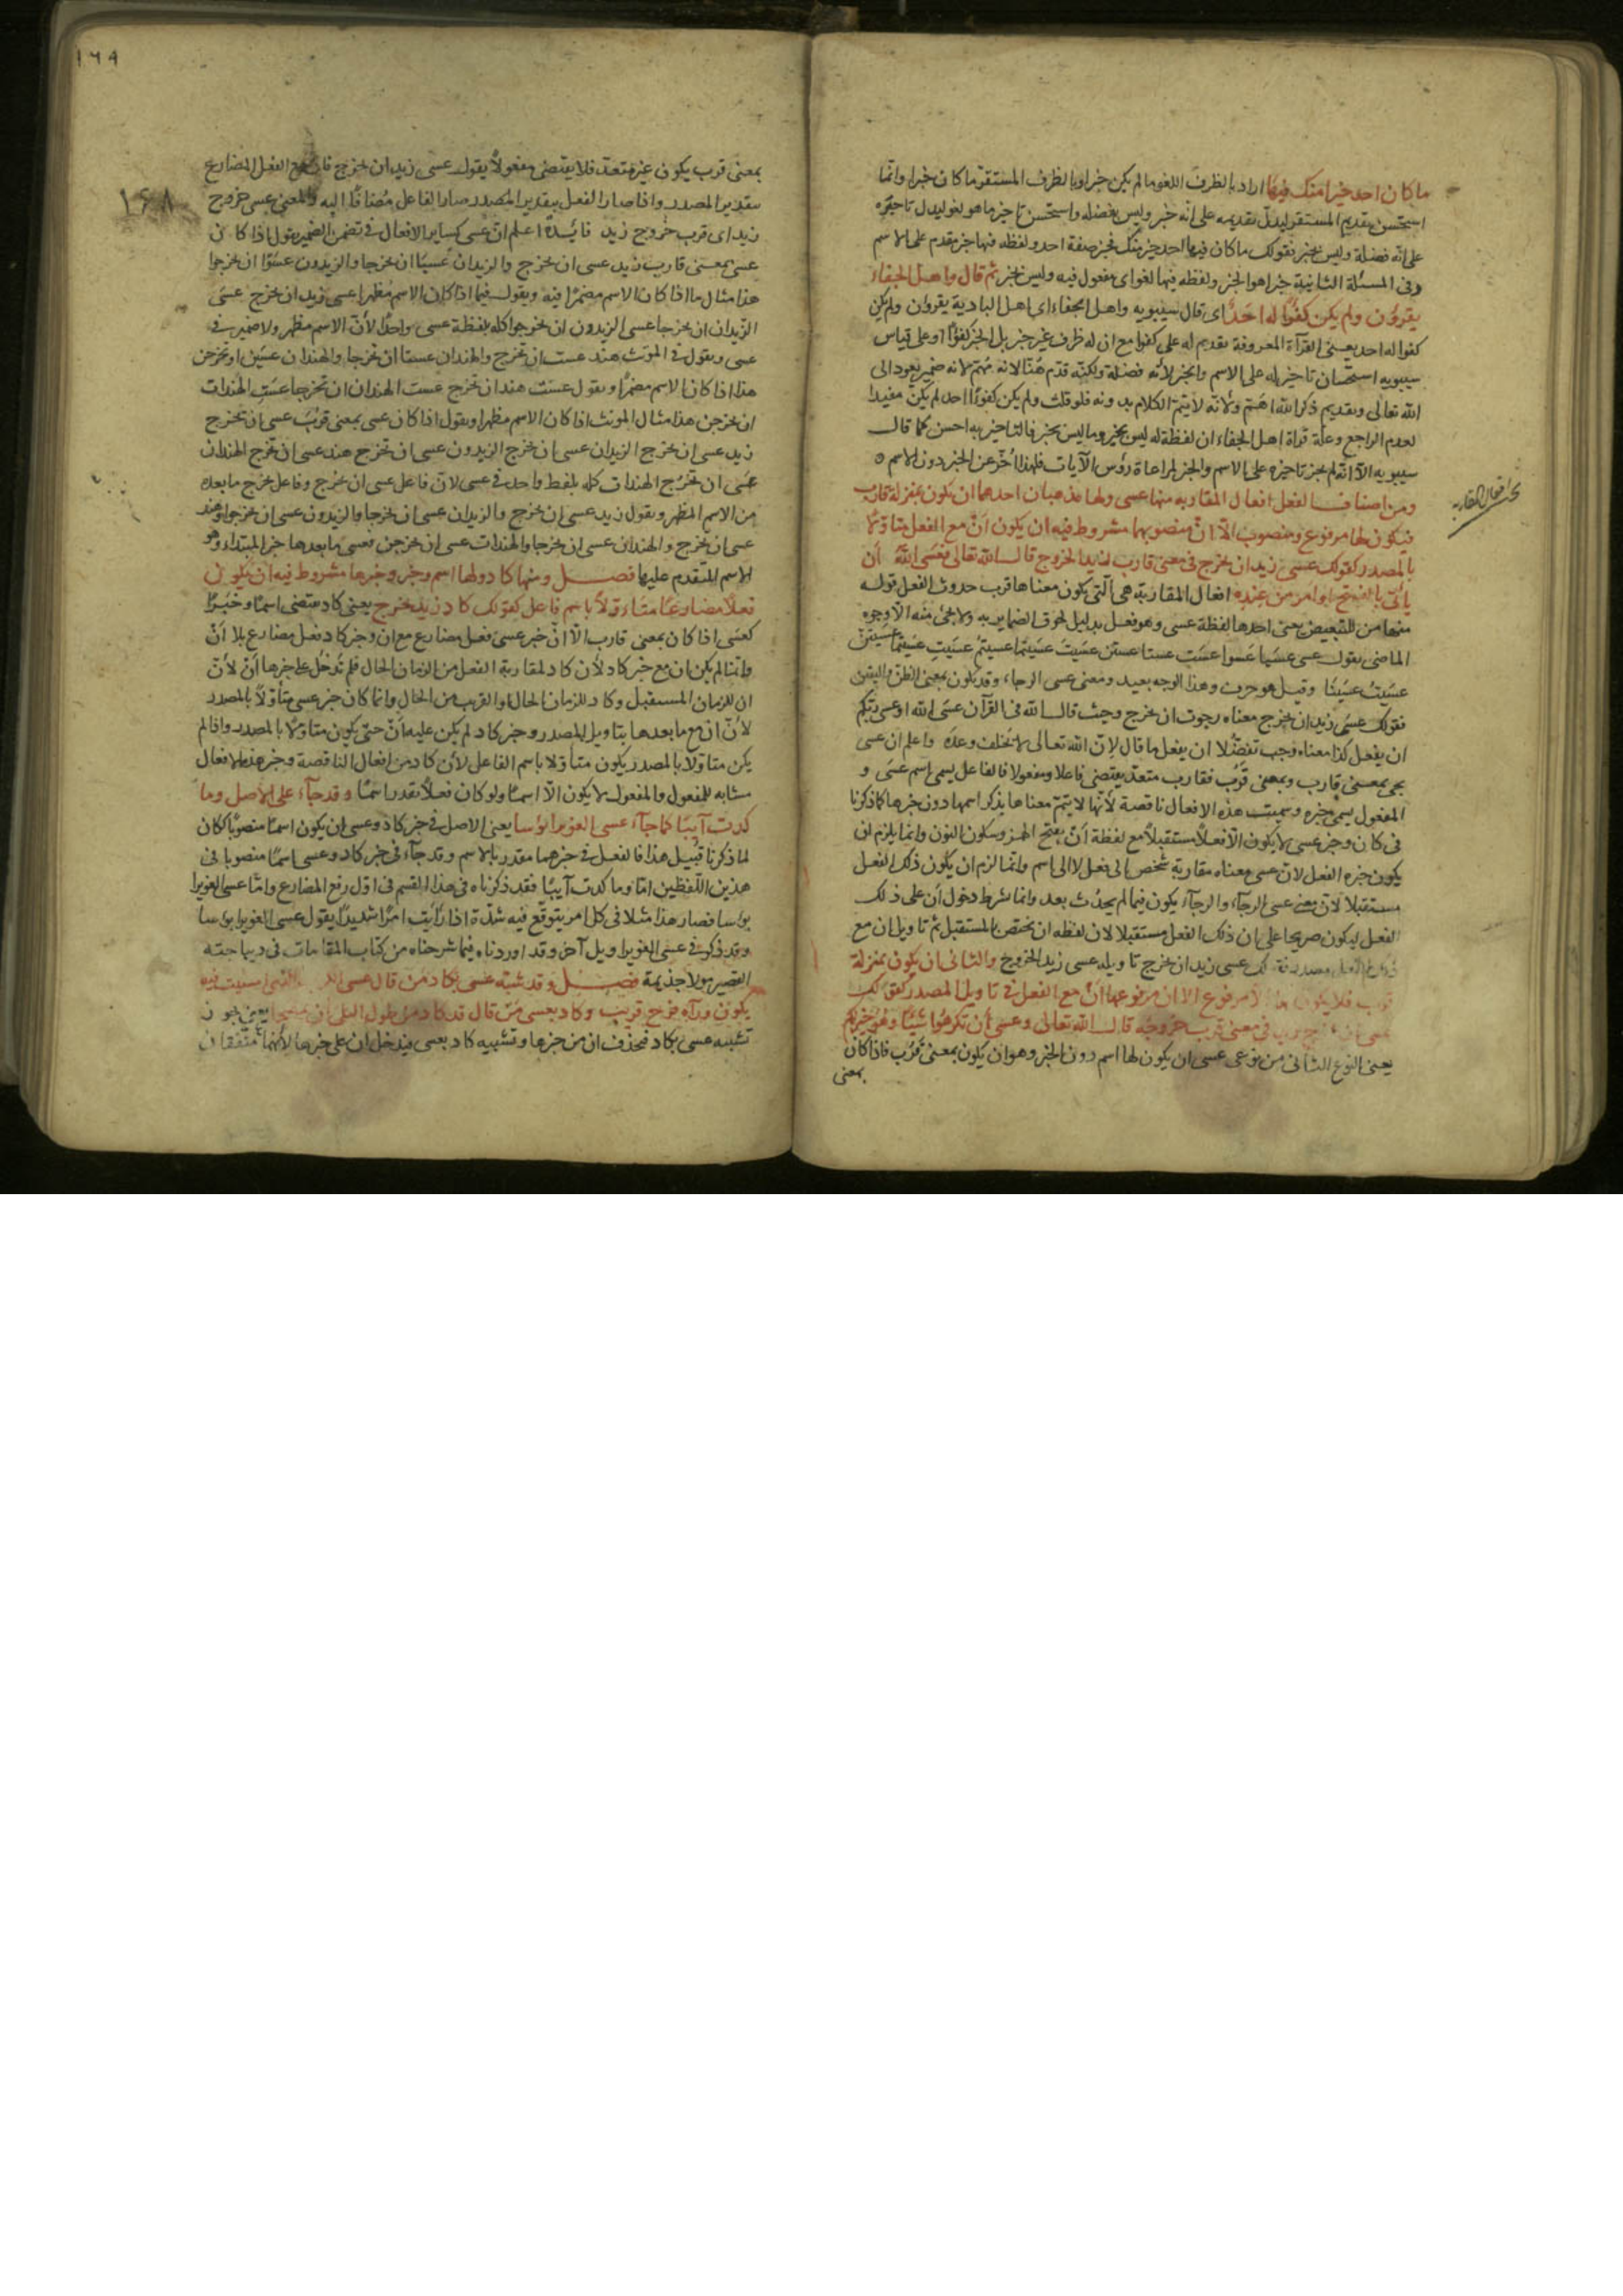 ما كان احد خيرا منك فيها اراد بالظرف اللغو ما لم يكن خبرا وبالظرف المستقر ما كان خبرا وانما
استحسن تقديم المستقر ليدل تقديمه على انّه خبر وليس بفضله واستحسن تاخير ما هو لغو ليدل تاخيره
على انّه فضلة وليس بخبر بقولك ما كان فيها احد خير منك فخير صفة احد ولفظه فيها خبر مقدم على الاسم
وفى المسئلة الثانية خيرا هو الخبر ولفظه فيها لغو اى مفعول فيه وليس بخبر ثم قال واهل الجفاء
يقرؤن ولم يكن كفوًا له احَدٌ اى قال سيبويه واهل الجفاء اى اهل البادية يقرؤن ولم يكن
كفوا له احد يعنى القرآة المعروفة تقديم له على كفوا مع ان له ظرف غير خبر بل الخبر كفؤًا وعلى قياس
سيبويه استحسان تاخير له على الاسم والخبر لأنه فضلة ولكنّه قدم هنا لانه مهتم لانه ضمير يعود الى
الله تعالى وتقديم ذكر الله اهتم ولانّه لا يتم الكلام بدونه فلو قلت ولم يكن كفوءًا احد لم يكن مفيدا
لعدم الراجع وعلة قراة اهل الجفاء ان لفظة له ليس بخبر وما ليس بخبر فالتاخير به احسن كما قال
سيبويه الّا انّه لم يجز تاخيره على الاسم والخبر لمراعاة رؤس الآيات فلهذا اُخّر عن الخبر دون الاسم
ومن اصناف الفعل افعال المقاربه منها عسى ولها مذهبان احدهما ان يكون بمنزلة قارب
فيكون لها مرفوع ومنصوب الّا انّ منصوبها مشروط فيه ان يكون اَنْ مع الفعل متاوّلا
بالمصدر كقولك عسى زيد ان يخرج فى معنى قارب زيد الخروج قال الله تعالى فعسَى اللّهُ اَن
يأتى بالفتح او امر من عِندِه افعال المقاربة هى التى يكون معناها قرب حدوث الفعل قوله
منها من للتبعيض يعنى احدها لفظة عسى وهو فعل بدليل لحوق الضماير به ولا يجئ منه الّا وجوه
الماضى يقول عسى عسَيا عَسَوا عسَت عستا عسين عسَيتَ عسَيتما عسيتم عسَيتِ عسَيتما عسَيتنّ
عسَيتُ عسَينا وقيل هو حرف وهذا الوجه بعيد ومعنى عسى الرجاء وقد يكون بمعنى الظن واليقين
فقولك عسى زيد ان يخرج معناه رجوت ان يخرج وحيث قال الله فى القرآن عسَى الله او عسى ربّكم
ان يفعل كذا معناه وجب تفضّلا ان يفعل ما قال لانّ الله تعالى لا يخلف وعدَه واعلم ان عسى
يجى بمعنى قارب وبمعنى قَرُب فقارب متعدّ يقتضى فاعلا ومفعولا فالفاعل يسمى اسم عسَى و
المفعول يسمى خبره وسميت هذه الافعال ناقصة لأنّها لا يتمّ معناها بذكر اسمها دون خبرها كما ذكرنا
فى كان وخبر عسى لا يكون الّا فعلًا مستقبلًا مع لفظة اَن بفتح الهمز وسكون النون وانما يلزم ان
يكون خبره الفعل لان عسى معناه مقاربة شخص الى فعل لا الى اسم وانما لزم ان يكون ذلك الفعل
مستقبلا لانّ معنى عسى الرجآء والرجآء يكون فيما لم يحدُث بعد وانما شرط دخول اَن على ذلك
الفعل ليكون صريحا على ان ذلك الفعل مستقبلا لان لفظه ان يختص بالمستقبل ثم تاويل ان مع
لك عسى زيد ان يخرج تاويله عسى زيد الخروج والثانى ان يكون بمنزلة
قرب فلا يكون لها الا مرفوع الا ان مرفوعها اَنْ مع الفعل فى تاويل المصدر كقولك
عسى ان يخرج زيد فى معنى قرب خروجه قال الله تعالى وعسى أن تكرهُوا شَيئًا وهُوَ خير لكم
يعنى النوع الثانى من نوعى عسى ان يكون لها اسم دون الخبر وهو ان يكون بمعنى قَرُب فاذا كان
بمعنى
بحث افعال المقاربه
١٦٩
١٦٨
بمعنى قرب يكون غير متعد فلا يقتضى مفعولًا يقول عسى زيد ان يخرج فان مع الفعل المضارع
بتقدير المصدر واذا صار الفعل بتقدير المصدر صار الفاعل مُضافًا اليه والمعنى عسى خروج
زيد اى قرب خروج زيد فائدةٌ اعلم ان عسى كساير الافعال فى تضمن الضمير يقول اذا كان
عسى بمعنى قارب زيد عسى ان يخرج والزيدان عَسَيَا ان يخرجا والزيدون عسَوْا ان يخرجوا
هذا مثال ما اذا كان الاسم مضمرًا فيه ويقول فيما اذا كان الاسم مُظهرا عسى زيد ان يخرج عسَى
الزيدان ان يخرجا عسى الزيدون ان يخرجوا كله بلفظة عسى واحدًا لأنّ الاسم مظهر ولا ضمير فى
عسى ويقول فى المونث هند عست ان تخرج والهندان عستا ان تخرجا والهندات عسَين ان يخرجن
هذا اذا كان الاسم مضمرًا ويقول عست هند ان تخرج عست الهندان ان تخرجا عسَتِ الهندات
ان يخرجن هذا مثال المونث اذا كان الاسم مظهرا ويقول اذا كان عسى بمعنى قرُبَ عسى ان يخرج
زيد عسى ان يخرج الزيدان عسى ان يخرج الزيدون عسى ان تخرج هند عسى ان تخرج الهندان
عسَى ان تخرُج الهندات كله بلفظ واحد فى عسى لانّ فاعل عسى ان يخرج وفاعل يخرج ما بعده
من الاسم المظهر ويقول زيد عسى ان يخرج والزيدان عسى ان يخرجا والزيدون عسى ان يخرجوا وهند
عسى ان تخرج والهندان عسى ان يخرجا والهندات عسى ان يخرجن فعسى ما بعدها خبر المبتداء وهو
الاسم المتقدم عليها فصل ومنها كاد ولها اسم وخبر وخبرها مشروط فيه ان يكون
فعلًا مضارعًا متاءوّلًا باسم فاعل كقولك كاد زيد يخرج يعنى كاد يقتضى اسمًا وخَبَرًا
كعسَى اذا كان بمعنى قارب الّا انّ خبر عسى فعل مضارع مع ان وخبر كاد فعل مضارع بلا اَنْ
وانّما لم يكن ان مع خبر كاد لأن كاد لمقاربة الفعل من الزمان الحال فلم تَدخُل على خبرها اَنْ لأن
ان للزمان المستقبل وكاد للزمان الحال او القريب من الحال وانما كان خبر عسى متأوّلاً بالمصدر
لأنّ ان مع ما بعدها بتاويل المصدر وخبر كاد لم يكن عليه اَنْ حتى يكون متاوّلا بالمصدر واذا لم
يكن متاوّلاً بالمصدر يكون متأوّلا باسم الفاعل لأن كاد من افعال الناقصة وخبر هذه الافعال
مشابه للمفعول والمفعول لا يكون الّا اسمًا ولو كان فعلًا يقدر اسمًا وقد جآء على الاصل وما
كدت آيبًا كما جآء عسى الغوير ابؤسا يعنى الاصل فى خبر كاد وعسى ان يكون اسمًا منصوبًا ككان
لما ذكرنا قُبَيل هذا فالفعل فى خبرهما مقدر بالاسم وقد جآء فى خبر كاد وعسى اسمًا منصوبا فى
هذين اللّفظين امّا وما كدت آيبًا فقد ذكرناه فى هذا القسم فى اوّل رفع المضارع وامّا عسى الغوير ا
بواسا فصار هذا مثلا فى كل امر يتوقّع فيه شدّة اذا رَأَيت امرًا شديدًا يقول عسى الغوير ابوسا
وقد ذكر فى عسى الغوير اويل آخر وقد اوردناه فيما شرحناه من كتاب المقامات فى ديباجته
القصير مولا جذيمة فصل وقد شبّه عسى بكاد مَن قال عسى الذى امسيت فيه
يكون ورآءه فرج قريب وكاد بعسى مَنْ قال قد كاد من طول البلى ان يمصحا يعنى يجوز
تشبيه عسى بكاد فيحذف ان من خبرها وتشبيه كاد بعسى فيدخل ان على خبرها لأنهما متّفقان